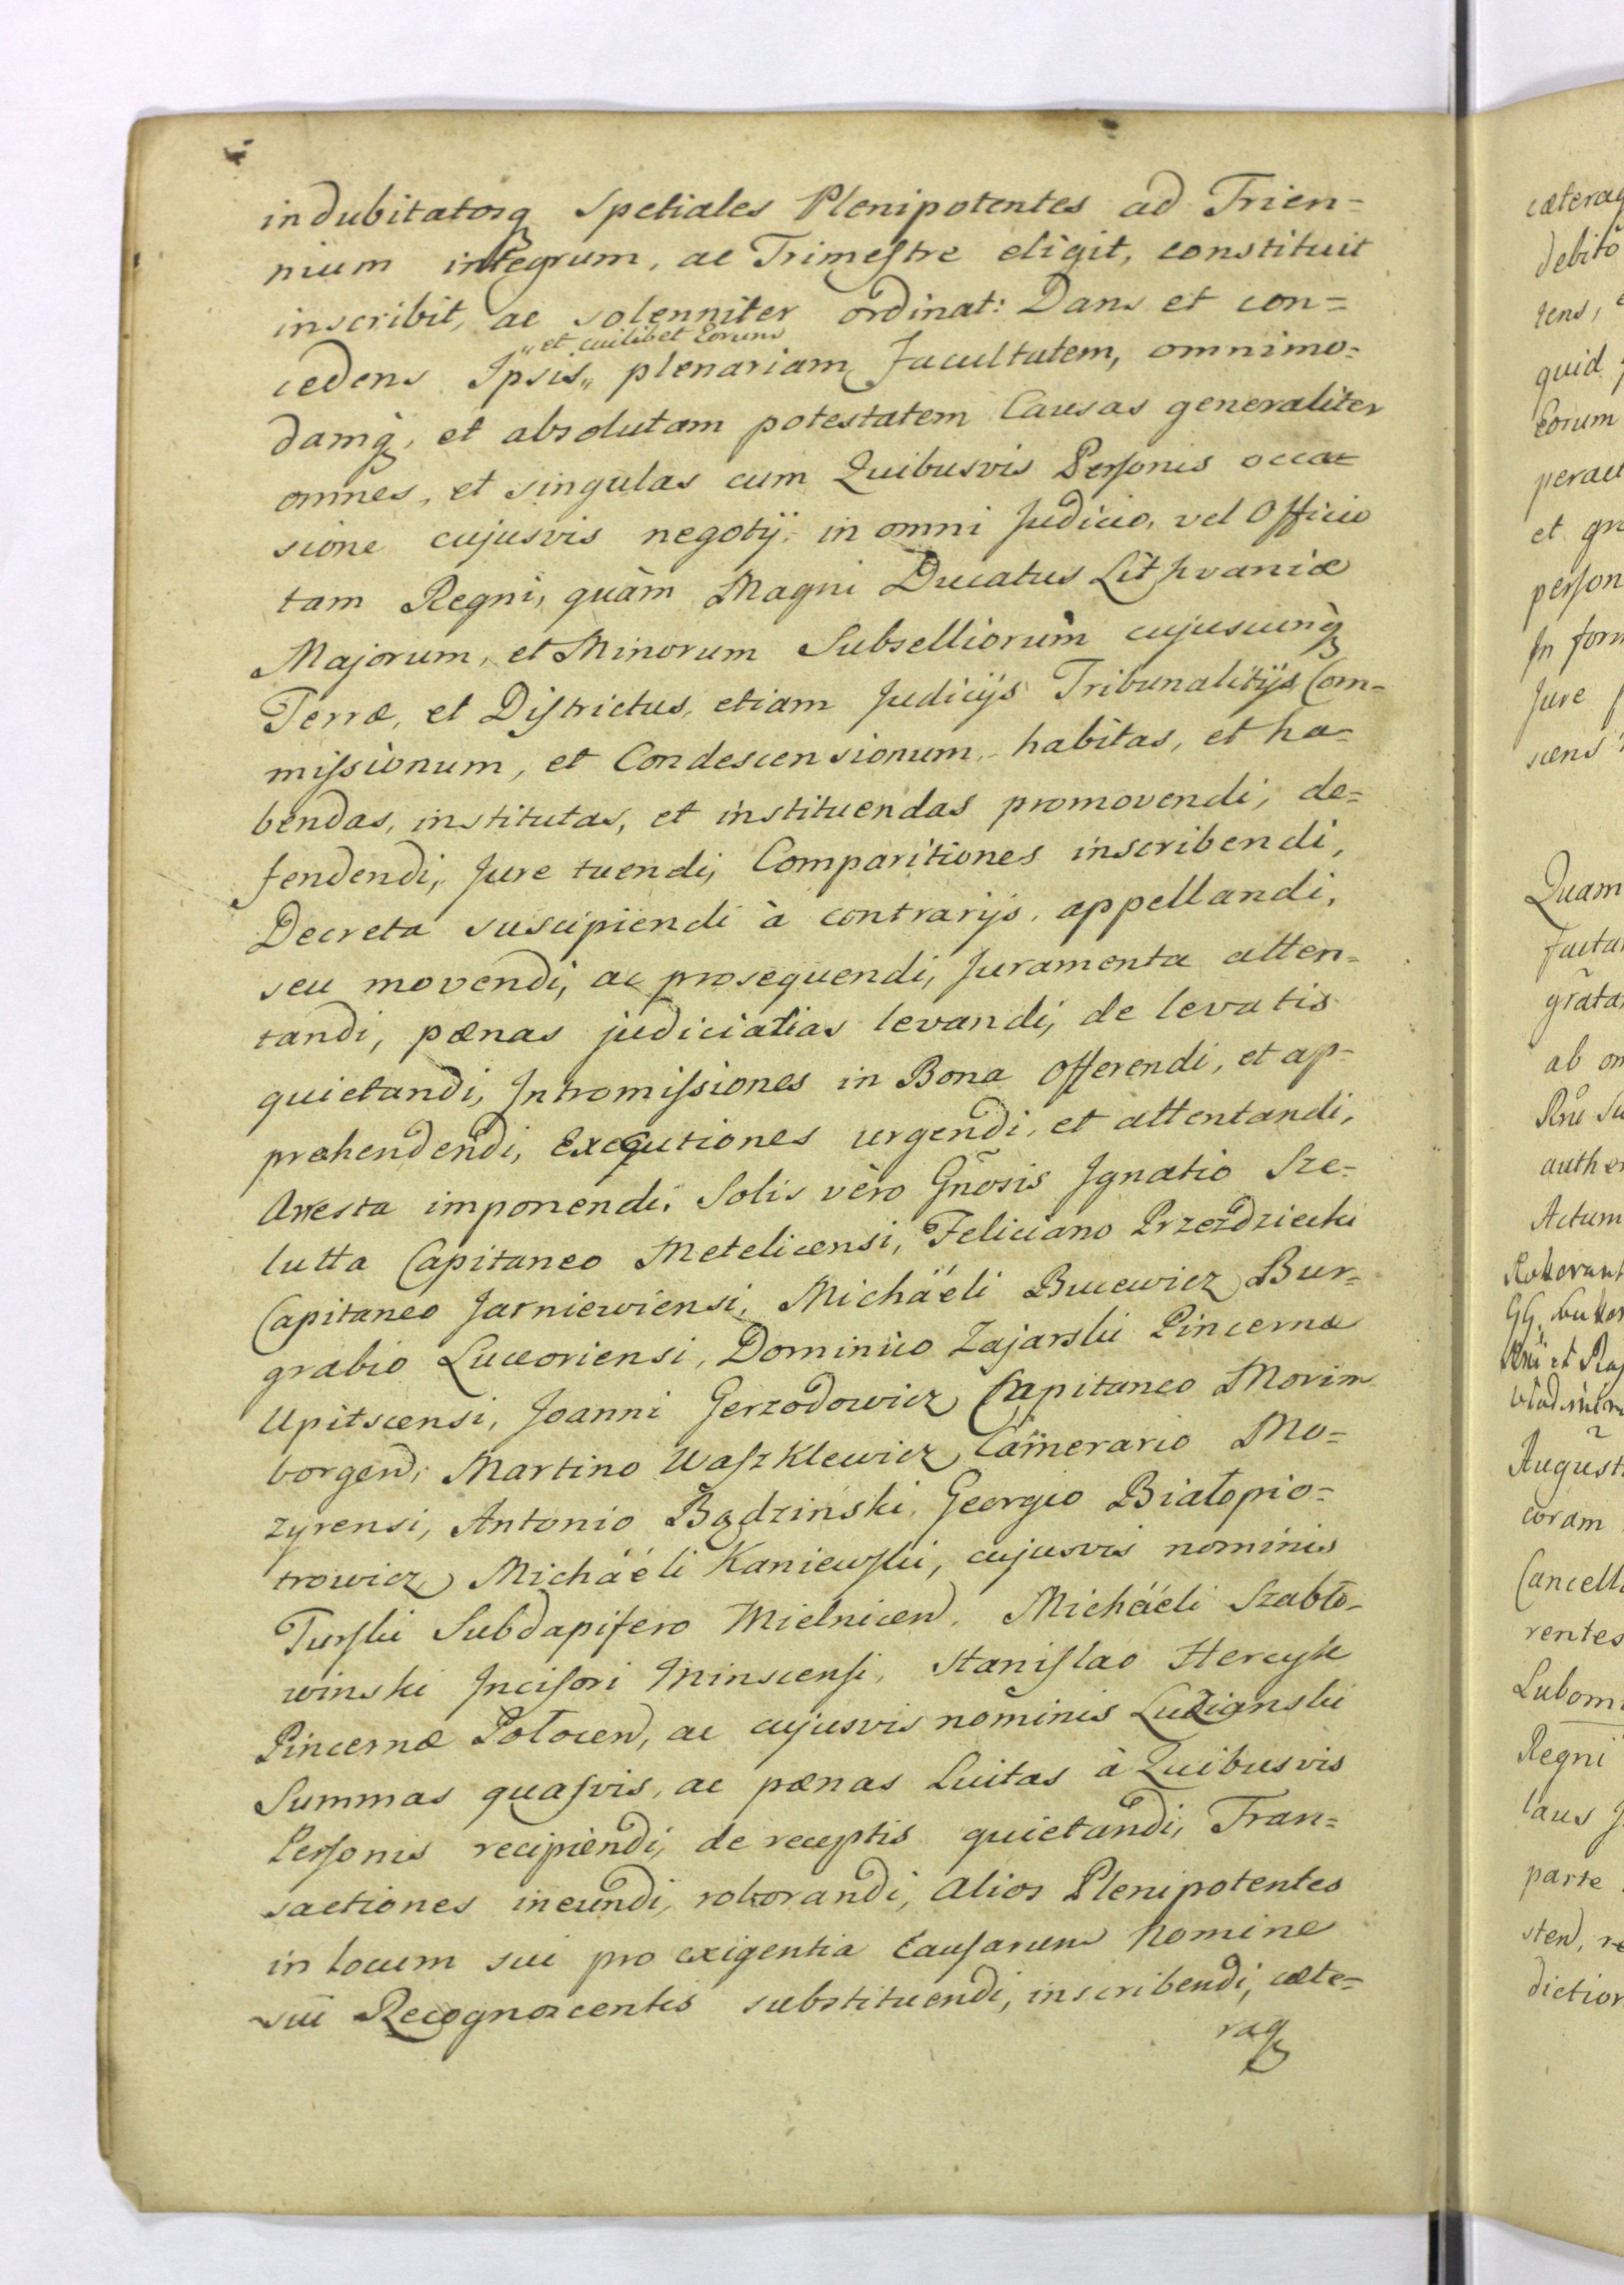 indubitatosq̃ Spetiales Plenipotentes ad Trien=
nium integrum, ac Trimestre eligit, constituit
inscribit, ac solenniter ordinat: Dans et con=
„et cuilibet Eorum
cedens Ipsis„ plenariam Facultatem, omnimo=
damq̃, et absolutam potestatem Causas generaliter
omnes, et singulas cum Quibusvis Personis occa=
sione cujusvis negotij, in omni Judicio, vel Officio
tam Regni, quàm Magni Ducatus Lithvaniæ
Majorum, et Minorum Subselliorum cujuscunq̃
Terræ, et Districtus, etiam Judicijs Tribunalitijs Com=
missionum, et Condescensionum, habitas, et ha=
bendas, institutas, et instituendas promovendi, de=
fendendi, Jure tuendi, Comparitiones inscribendi,
Decreta suscipiendi à contrarijs, appellandi,
seu movendi, ac prosequendi, Juramenta atten=
tandi, pænas judiciatias levandi, de levatis
quietandi, Intromissiones in Bona Offerendi, et ap=
præhendendi, Exequtiones urgendi, et attentandi,
Arresta imponendi. Solis vèro Gñosis Ignatio Sze=
lutta Capitaneo Metelicensi, Feliciano Przezdziecki
Capitaneo Jarniewiensi, Michäeli Bucewicz Bur=
grabio Luceoriensi, Dominico Zajarski Pincernæ
Upitscensi, Joanni Gerzodowicz Capitaneo Morim
borgen; Martino Waszklewicz Camerario Mo=
zyrensi, Antonio Bądzinski, Georgio Białopio=
trowicz Michäeli Kaniewski, cujusvis nominis
Turski Subdapifero Mielnicen. Michäeli Szabło=
winski Incisori Minscensi, Stanislao Hercyk
Pincernæ Połocen, ac cujusvis nominis Ludianski
Summas quasvis, ac pænas Luitas à Quibusvis
Personis recipiendi, de receptis quietandi, Tran=
sactiones ineundi, roborandi, Alios Plenipotentes
in locum sui pro exigentia Causarum Nomine
sui Recognoscentis substituendi, inscribendi, cæte=
raq̃
cæteraq
debito
tens,
quid
Eorum
peract
et gr
person
In form
Jure
scens
Quam
factar
grata
ab om
authen
Actum
Roborant
August
coram
Cancell
rentes
Lubom
Regni
laus
parte
sten, re
diction